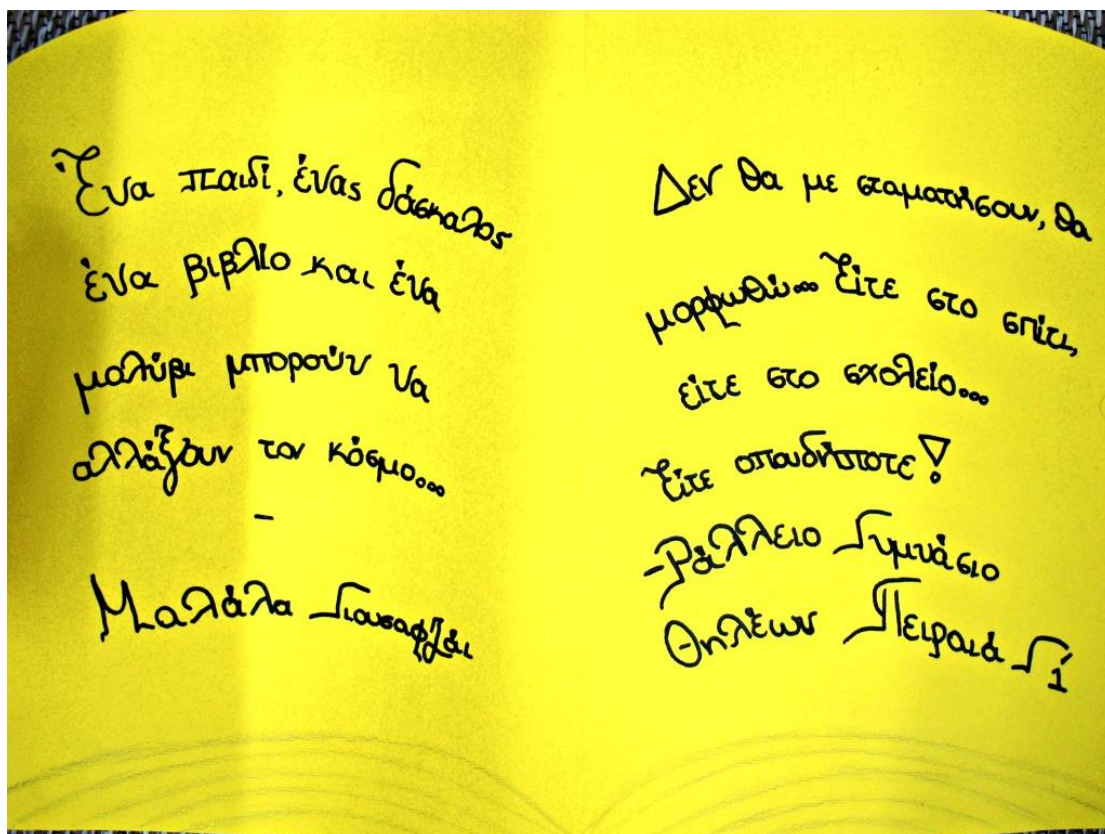 Ένα παιδί, ένας δάσκαλος
ένα βιβλίο και ένα
μολύβι μπορούν να
αλλάξουν τον κόσμο...
-
Μαλάλα Γιουσαφζάι
Δεν θα με σταματήσουν, θα
μορφωθώ... Είτε στο σπίτι,
είτε στο σχολείο...
Είτε οπουδήποτε!
-Ράλλειο Γυμνάσιο
Θηλέων Πειραιά Γ1